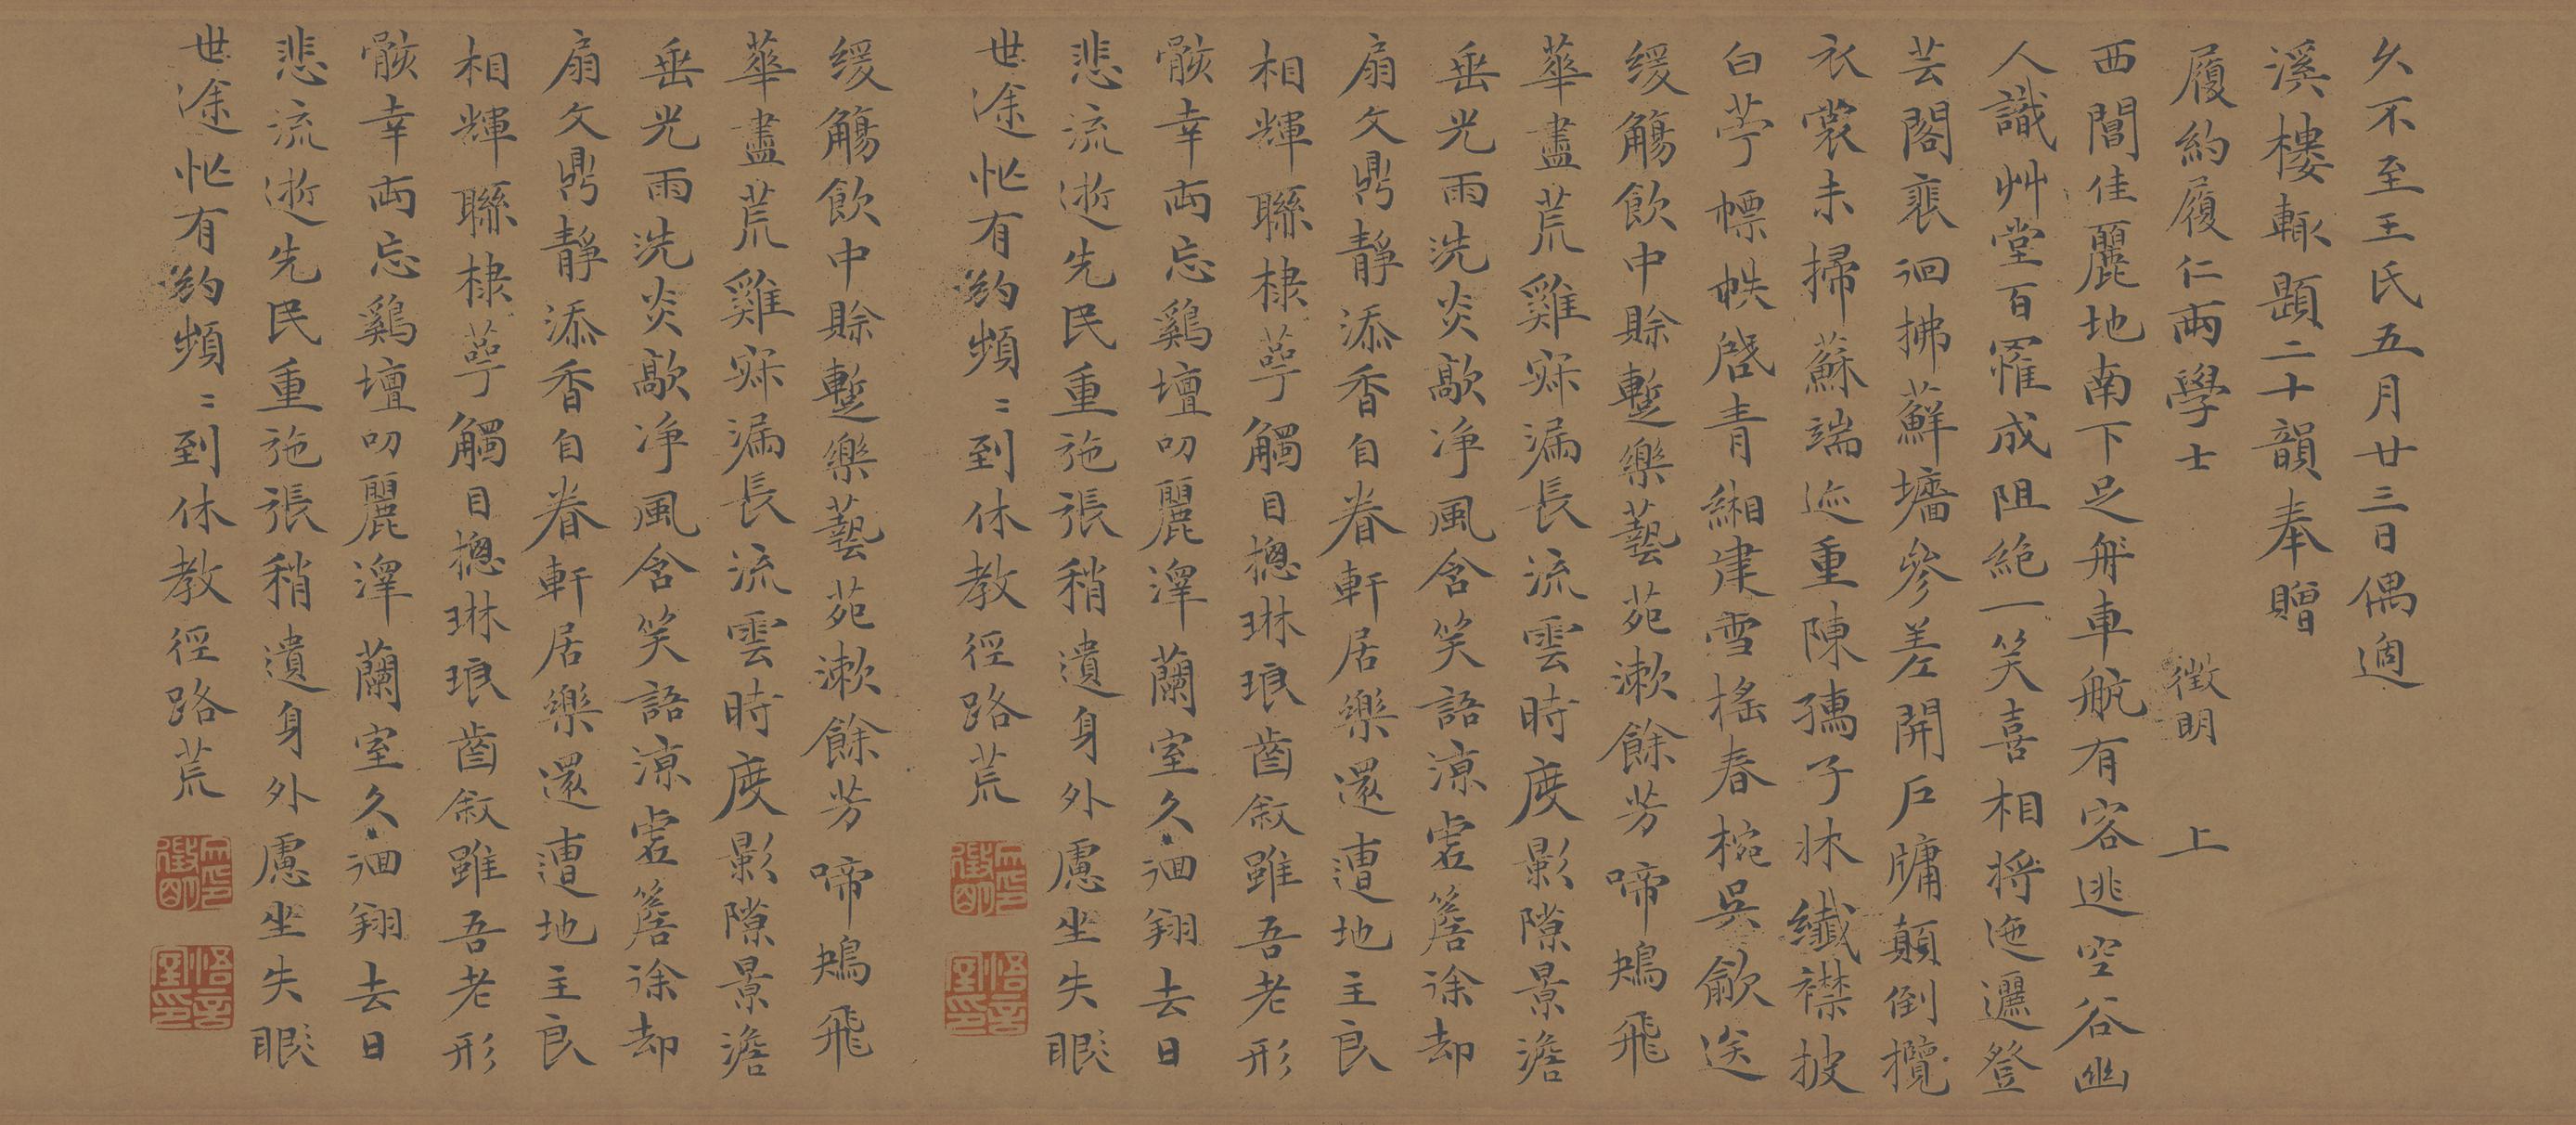 久不至王氏五月廿三日偶適
溪樓輒題二十韻奉贈
履約履仁兩學士 徵明 上
西閶佳麗地南下足舟車航有客逃空谷幽
人識艸堂百罹成阻絕一笑喜相將迤邐登
芸閣裴徊拂蘚墻參差開戶牖顛倒攬
衣裳未掃蘇端迹重陳孺子牀纖襟披
白苧幖帙啓青緗聿雪搖春椀吳歈送
緩觴飲中賒蹔樂藝苑漱餘芳啼鴂飛
華盡荒雞寐漏長流雲時度影隙景澹
垂光雨洗炎歊净風含笑語涼虗簷徐却
扇文鼎靜添香自眷軒居樂還遭地主良
相輝聯棣萼觸目摠琳琅齒敘雖吾老形
骸幸兩忘鷄壇叨麗澤蘭室久徊翔去日
悲流逝先民重施張稍遺身外慮坐失眼
世途忙有約頻〻到休教徑路荒
緩觴飲中賒蹔樂藝苑漱餘芳啼鴂飛
華盡荒雞寐漏長流雲時度影隙景澹
垂光雨洗炎歊净風含笑語涼虗簷徐却
扇文鼎靜添香自眷軒居樂還遭地主良
相輝聯棣萼觸目摠琳琅齒敘雖吾老形
骸幸兩忘鷄壇叨麗澤蘭室久徊翔去日
悲流逝先民重施張稍遺身外慮坐失眼
世途忙有約頻〻到休教徑路荒